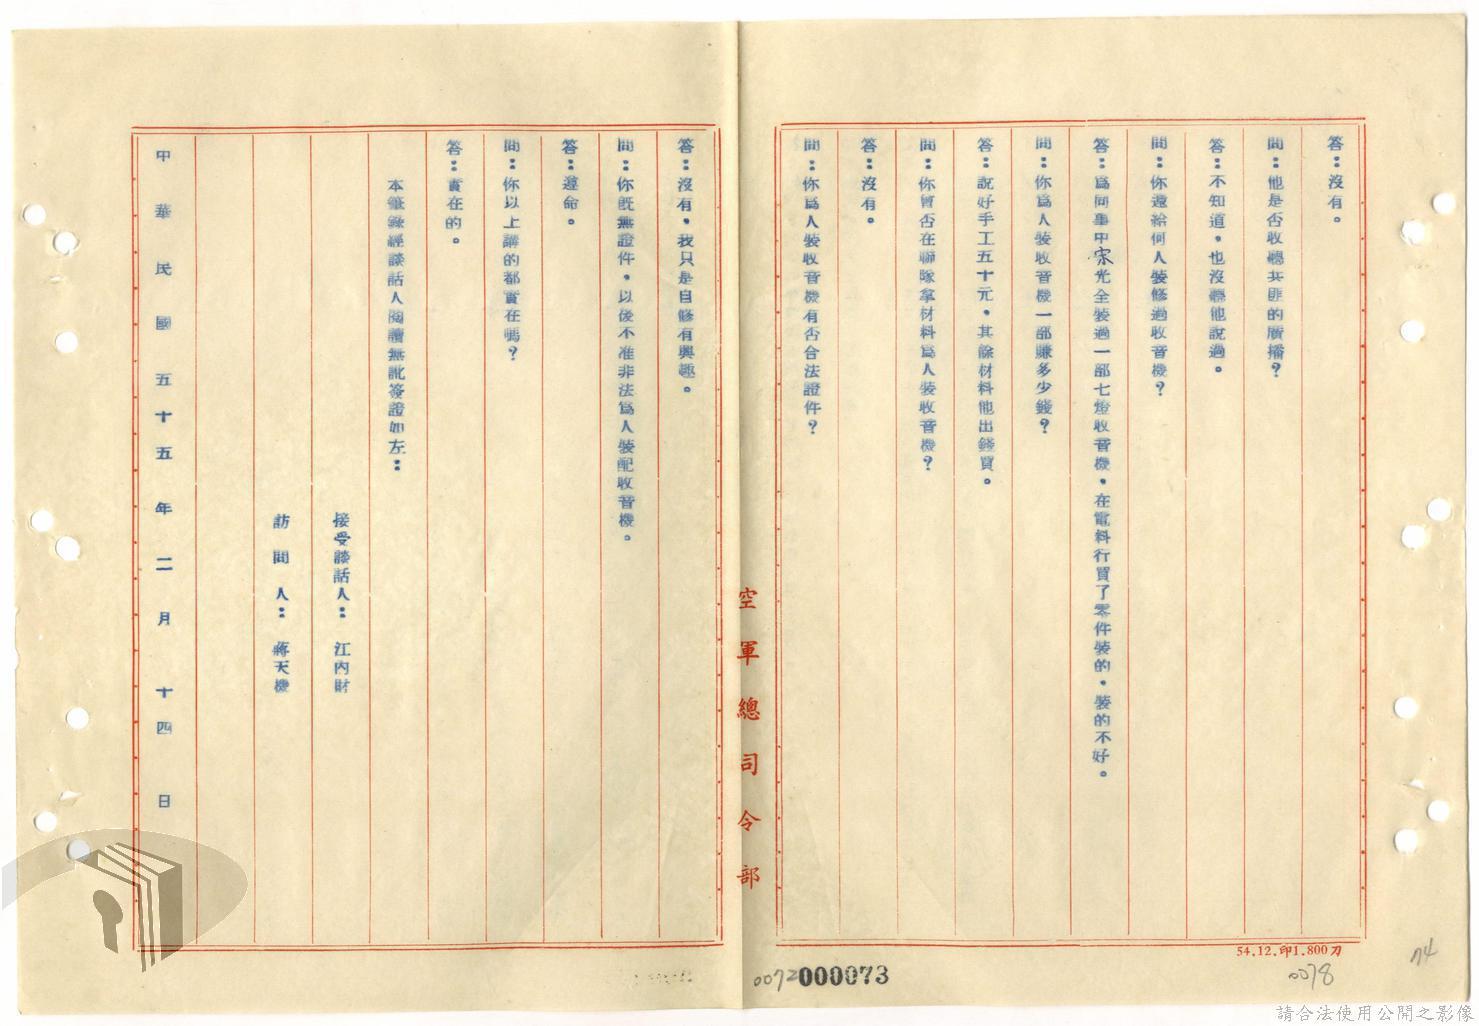 答：沒有。
問：他是否收聽共匪的廣播？
答：不知道，也沒聽他說過。
問：你還給何人裝修過收音機？
答：為同事中宋光全裝過一部七燈收音機，在電料行買了零件裝的，裝的不好。
問：你為人裝收音機一部賺多少錢？
答：說好手工五十元，其餘材料他出錢買。
問：你曾否在聯隊拿材料為人裝收音機？
答：沒有。
問：你為人裝收音機有否合法證件？
空軍總司令部
答：沒有，我只是自修有興趣。
問：你既無證件，以後不准非法為人裝配收音機。
答：遵命。
問：你以上講的都實在嗎？
答：實在的。
本筆錄經談話人閱讀無訛簽證如左：
接受談話人：江內財
訪問人：蔣天機
中華民國五十五年二月十四日
54.12.印1.800刀
0072
000073
0078
74
請合法使用公開之影像